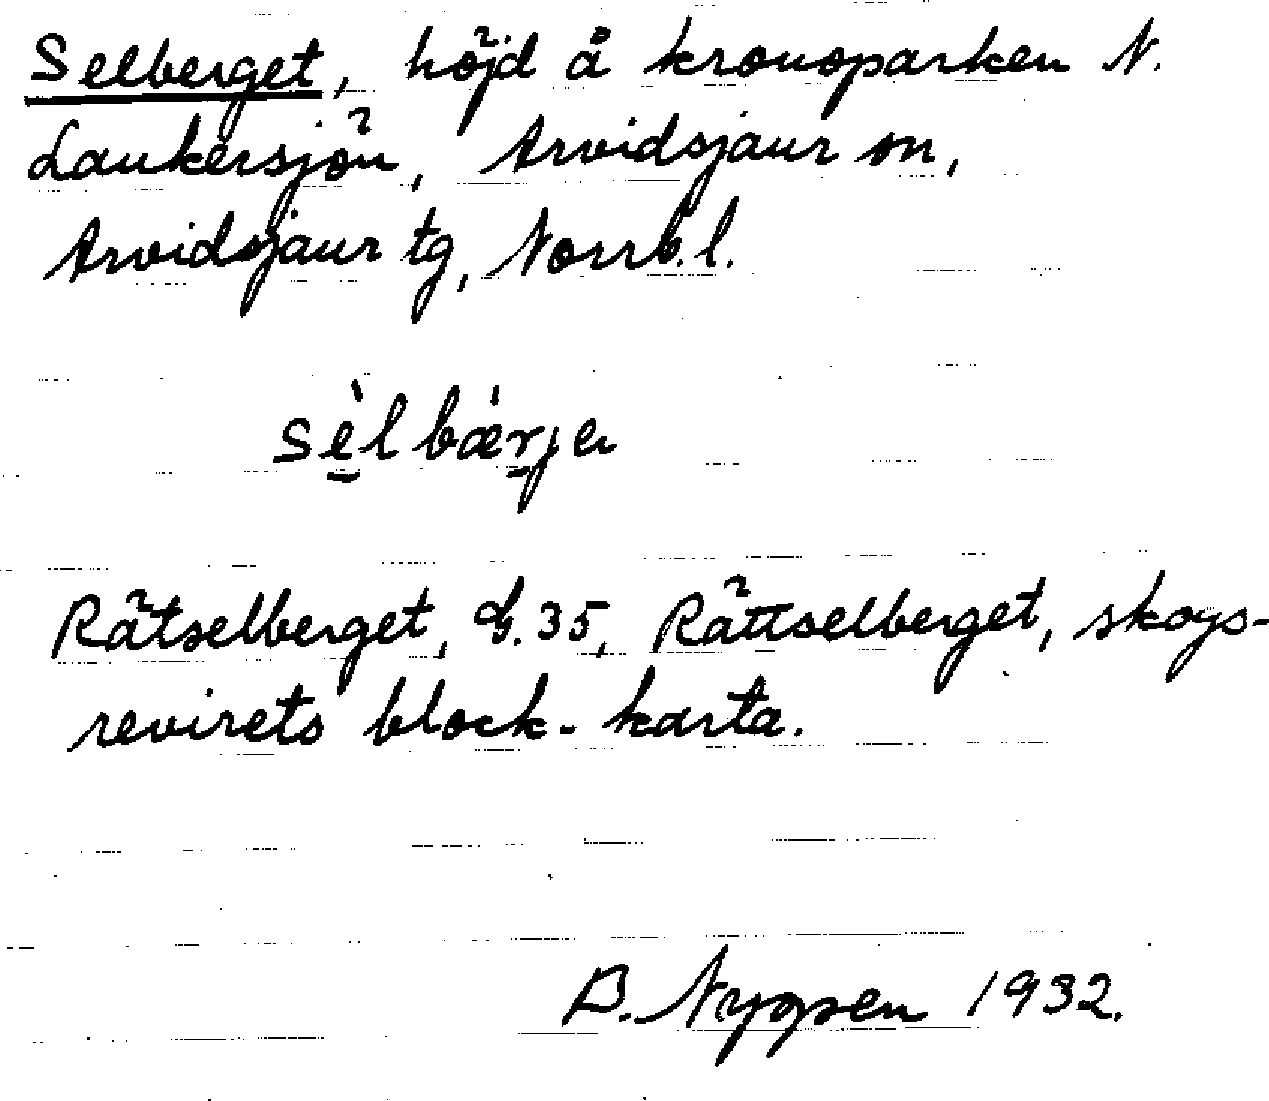 Selberget, höjd å kronoparken N.
Laukersjön, Arvidsjaur sn,
Arvidsjaur tg, Norrb. l.
sèlbærje
Rätselberget, G. 35, Rättselberget, skogs-
revirets block-karta.
B. Nygren 1932.